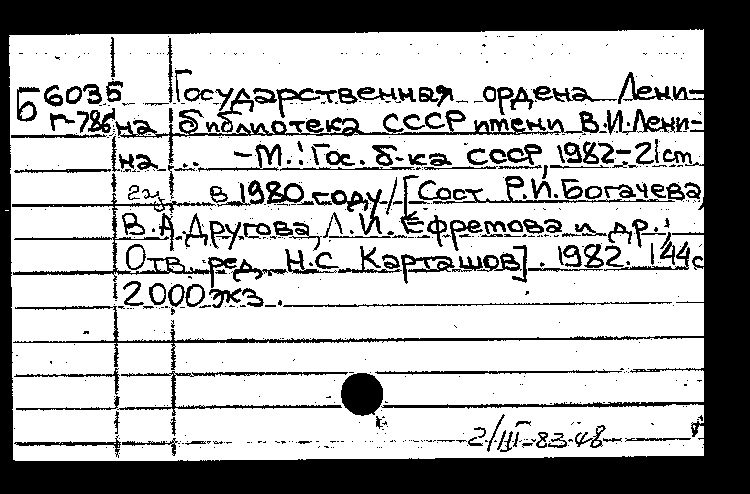 Б 6035 Государственная ордена Лени-
Г-786 на библиотека СССР имени В.И.Лени-
на .. -М.: Гос. б-ка СССР, 1982-21 ст.
в 1980 году/[Сост. Р.И.Богачева,
В.А.Другова, Л.И. Ефремова и др.;
Отв. ред. Н.С. Карташов]. 1982. 144с
2000 экз.
2/III-83-48